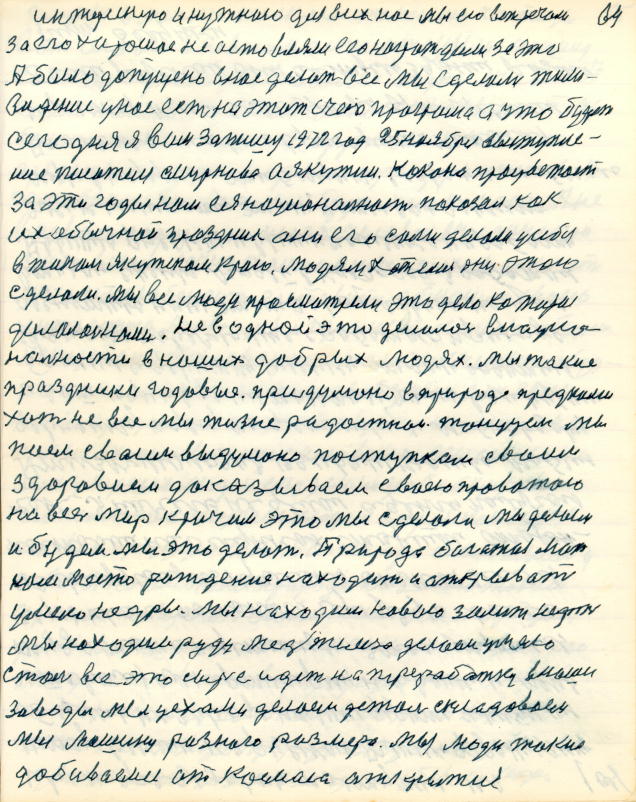 инженеро и нужного для всех нас мы его встречам 64
за его хорошое не оставляли его награждали за это
А было допущено в нас делат все мы сделали тили-
видение у нас ест на этот счет програма а что будет
сегодня я вам запишу 1972 год 25 ноября выступле-
ние писателя Смирнова а якутии. Как она процветает
за эти годы нам ся национальност показал как
их обычной праздник ани его сами делали у себя
в таком якутском краю. людям хателис они этого
сделали. мы все люди просматрели это дело каторы
делалос нами. Не в одной это делалос в нацио-
налности в наших добрых людях. мы такие
праздники годовые. придумано в природе предками
хот не все мы жизне радостнои. танцуем мы
паем своим выдумано поступкам своим
здоровием доказываем своею праватою
на вес мир кричим это мы сделали мы делаем
и будем мы это делат. Природа багатая мат
нам место рождение находит и аткрывает
у нею недры. Мы находим новою залиж нефти
мы находим руду мед железо делаем у нею
стал все это сыре идет на переработку в наши
заводы мы цехами делаем детали складоваем
мы машину разного размера. мы люди такие
добиваемся от космаса аткрытий